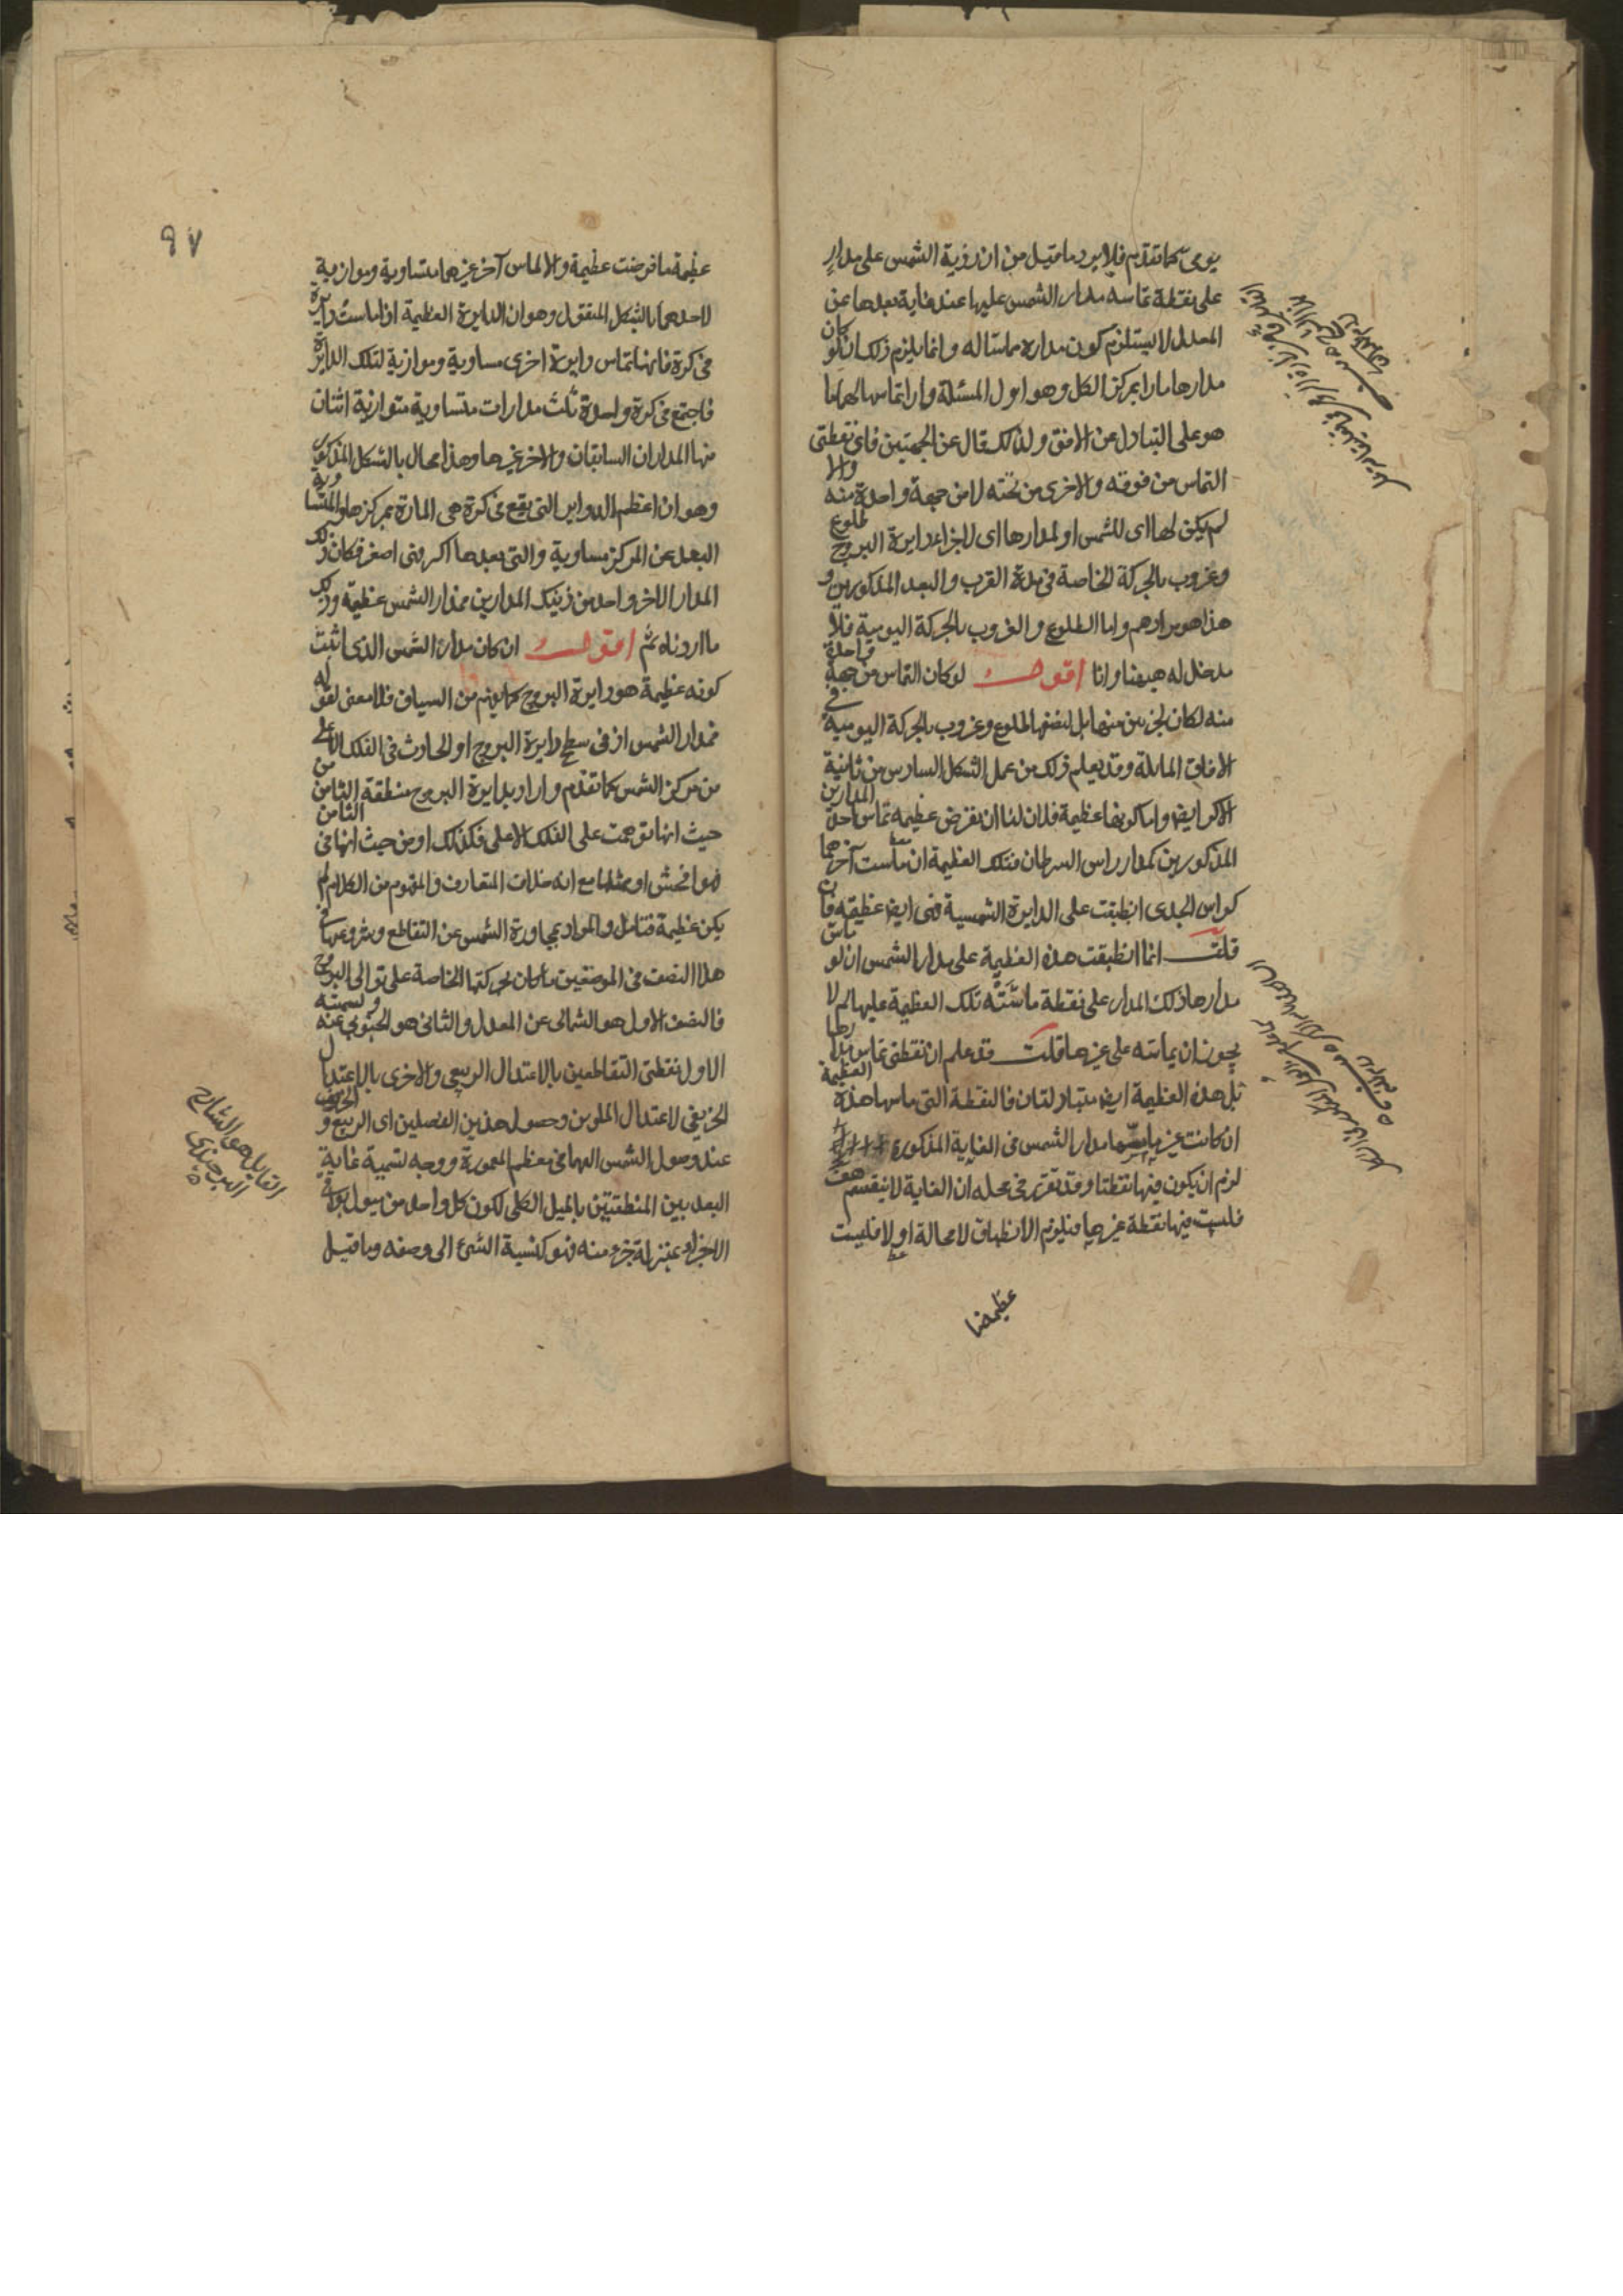 يومى كما تقدم فلا يرد ما قيل من ان رؤية الشمس على مدار
على نقطة تماسه مدار الشمس عليها عند غاية بعدها عن
المعدل لا يستلزم كون مداره مماسا له وانما يلزم ذلك ان لو كان
مدارها مارا بمركز الكل وهو اول المسئلة واراد تماسها لهما
هو على التبادل عن الافق ولذلك قال عن الجهتين فاى نقطتى
التماس من فوقه والاخرى من تحته لا من جهة واحدة منه والا
لم يكن لها اى للشمس او لمدارها اى لاجزاء دايرة البروج طلوع
وغروب بالحركة الخاصة فى مدة القرب والبعد المذكورين و
هذا هو مرادهم واما الطلوع والغروب بالحركة اليومية فلا
مدخل له ههنا وانا اقول لو كان التماس من جهة واحدة
منه لكان لجزئين منها بل لبعضها طلوع وغروب بالحركة اليومية فى
الافاق المايلة وقد يعلم ذلك من عمل الشكل السادس من ثانية
الاكر ايضا واما كونها عظيمة فلان لنا ان نفرض عظيمة تماس احد المدارين
المذكورين كمدار راس السرطان فتلك العظيمة ان ماست آخرهما
كراس الجدى انطبقت على الدايرة الشمسية فهى ايضا عظيمة فان
قلت انما انطبقت هذه العظيمة على مدار الشمس ان لو ماس
مدارها ذلك المدار على نقطة ماسته تلك العظيمة عليها لم لا
يجوز ان يماسه على غيرها قلت قد علم ان نقطتى تماس مدارها
بل هذه العظيمة ايضا متبادلتان فالنقطة التى ماسها هذه العظيمة
ان كانت غير ما مسها مدار الشمس فى الغاية المذكورة
لزم ان يكون فيها نقطتا وقد تقرر فى محله ان الغاية لا ينقسم هف
فليست فيها نقطة غيرها فيلزم الانطباق لا محالة او لا فليست
عظيمة
٩٧
عظيمة ما فرضت عظيمة والا لماس آخر غيرهما متساوية وموازية
لاحدهما بالشكل المنقول وهو ان الدايرة العظيمة اذا ماست دايرة
فى كرة فانها تماس دايرة اخرى مساوية وموازية لتلك الدايرة
فاجتمع فى كرة واحدة ثلث مدارات متساوية متوازية اثنان
منها المداران السابقان والاخر غيرها وهذا محال بالشكل المذكور
وهو ان اعظم الدواير التى تقع فى كرة هى المارة بمركزها والمتساوية
البعد عن المركز مساوية والتى بعدها اكثر فهى اصغر فكان ذلك
المدار الاخر واحد من ذينك المدارين فمدار الشمس عظيمة وذلك
ما اردناه ثم اقول ان كان مدار الشمس الذى اثبت
كونه عظيمة هو دايرة البروج كما يفهم من السياق فلا معنى لقوله
فمدار الشمس اذ فى سطح دايرة البروج او الحادث فى الفلك الاعلى
من مركز الشمس كما تقدم واراد بدايرة البروج منطقة الثامن من
حيث انها توهمت على الفلك الاعلى فكذلك او من حيث انها فى الثامن
فهو افحش او مثلها مع انه خلاف المتعارف والمفهوم من الكلام لم
يكن عظيمة فتامل والمراد بمجاورة الشمس عن التقاطع وشروعها فى
هذا النصف فى الموضعين ما كان بحركتها الخاصة على توالى البروج
فالنصف الاول هو الشمالى عن المعدل والثانى هو الجنوبى عنه وتسمية
الاول نقطتى التقاطعين بالاعتدال الربيعى والاخرى بالاعتدال
الخريفى لاعتدال الملوين وحصول هذين الفصلين اى الربيع و الخريف
عند وصول الشمس اليهما فى معظم المعمورة ووجه تسمية غاية
البعد بين المنطقتين بالميل الكلى لكون كل واحد من ميول بواقى
الاجزاء بمنزلة جزء منه فهو كنسبة الشئ الى وصفه وما قيل
القايل هو الشارح
البرجندى